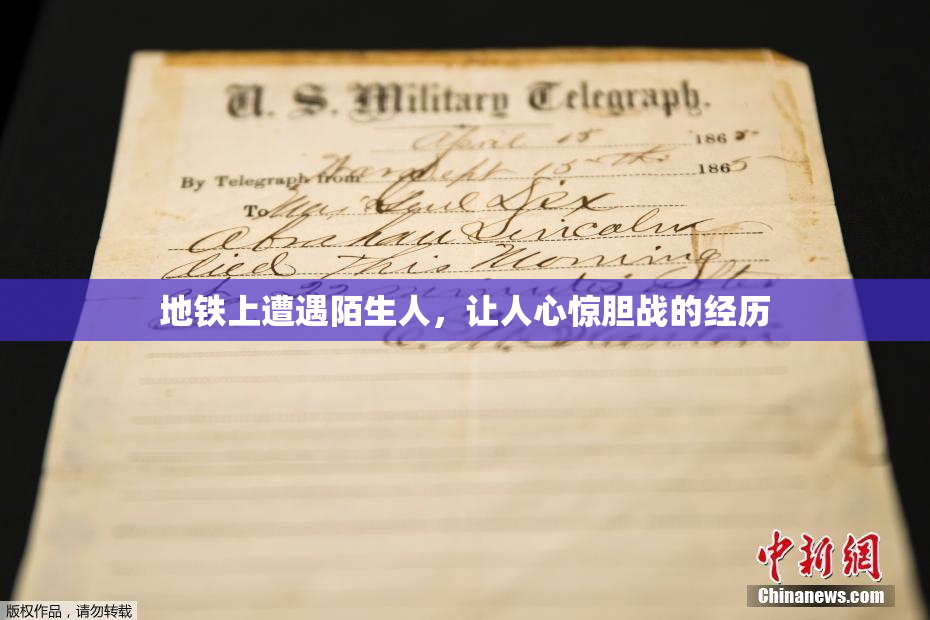 U. S. Military Telegraph.
April 15 1865
By Telegraph from War Dept 15th 1865
To Maj Genl Dix
Abraham Lincoln
died This Morning
at 22 minutes after
地铁上遭遇陌生人，让人心惊胆战的经历
E. M. Stanton
中新网
Chinanews.com
版权作品，请勿转载